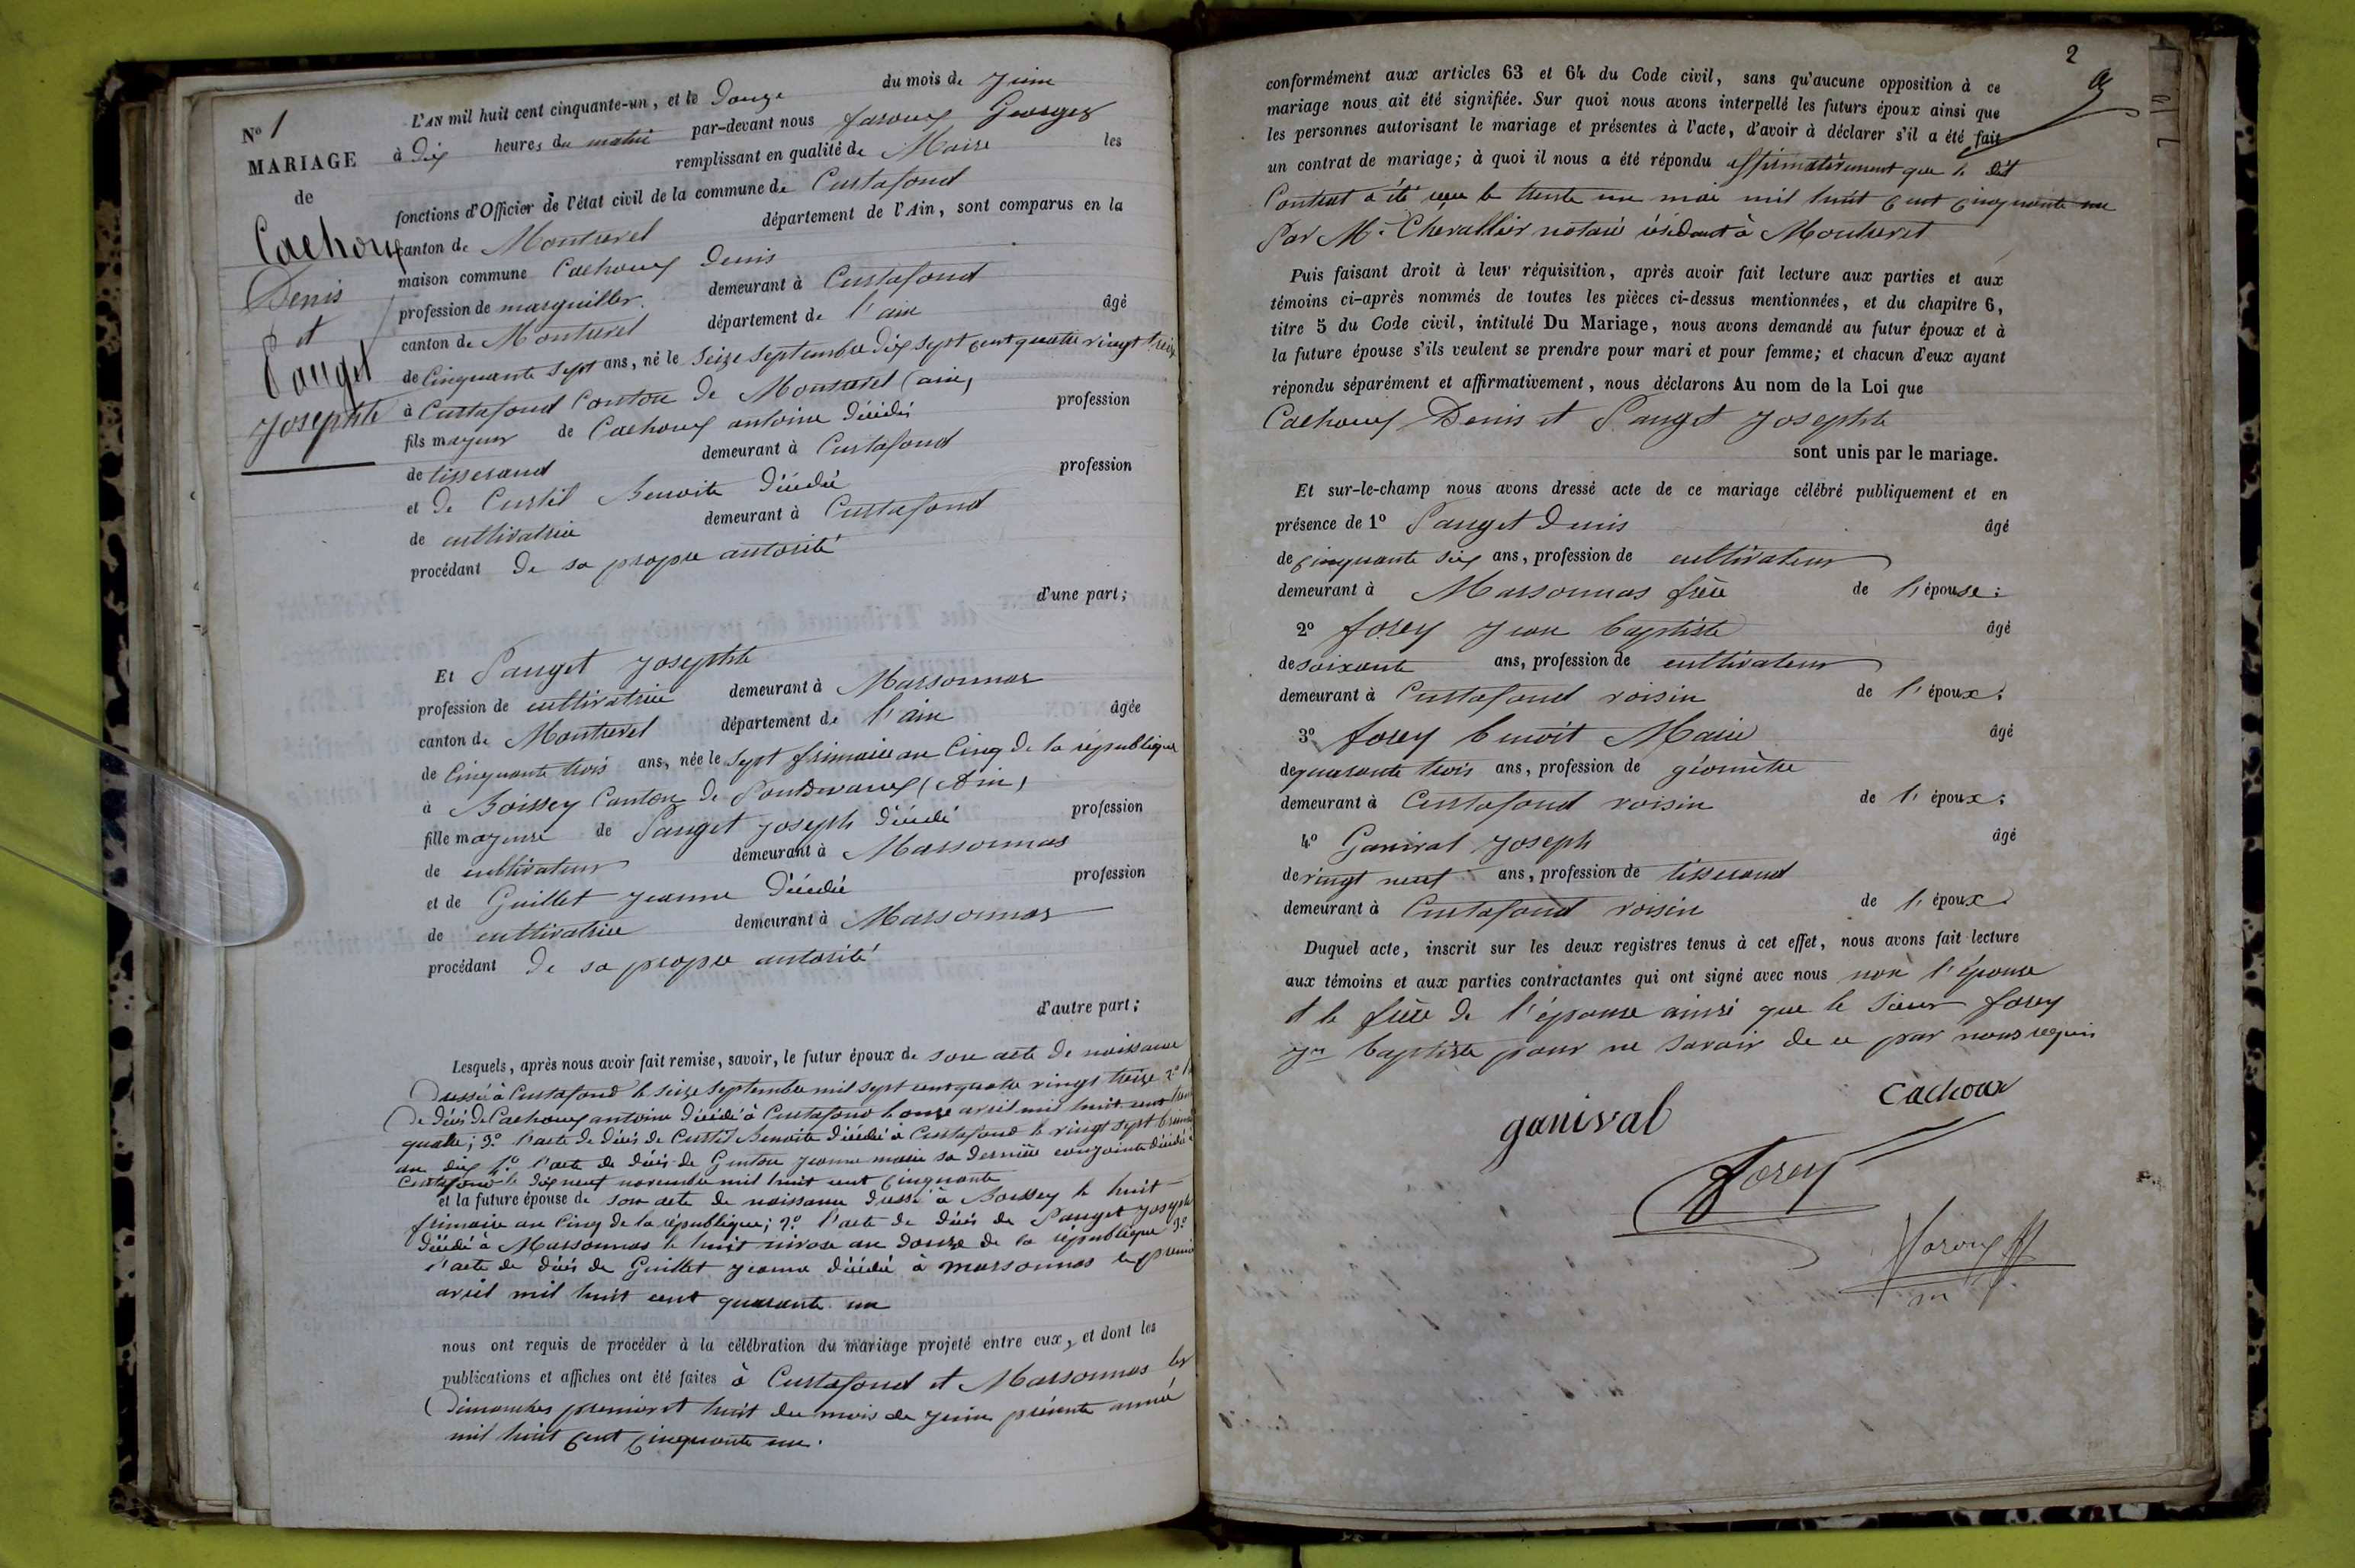 N° 1
MARIAGE
de
Cachoux
Denis
et
Pauget
Josephte
L'AN mil huit cent cinquante-un, et le Douze du mois de Juin
à Dix heures du matin par-devant nous faroux Georges
remplissant en qualité de Maire les
fonctions d'Officier de l'état civil de la commune de Curtafond
canton de Montrevel département de l'Ain, sont comparus en la
maison commune Cachoux Denis
profession de marguiller demeurant à Curtafond
canton de Montrevel département de l'ain âgé
de Cinquante sept ans, né le seize septembre dix sept cent quatre vingt treize
à Curtafond Canton de Montrevel (ain)
fils majeur de Cachoux antoine décédé profession
de tisserand demeurant à Curtafond
et de Curtil Benoite décédée profession
de cultivatrice demeurant à Curtafond
procédant de sa propre autorité
d'une part;
Et Pauget Josephte
profession de cultivatrice demeurant à Marsonnas
canton de Montrevel département de l'ain âgée
de Cinquante trois ans, née le sept frimaire an Cinq de la république
à Boissey Canton de Pontdevaux (Ain)
fille majeure de Pauget Joseph décédé profession
de cultivateur demeurant à Marsonnas
et de Guillet Jeanne décédée profession
de cultivatrice demeurant à Marsonnas
procédant de sa propre autorité
d'autre part;
Lesquels, après nous avoir fait remise, savoir, le futur époux de son acte de naissance
Dressé à Curtafond le seize septembre mil sept cent quatre vingt treize 2°
De décés de Cachoux antoine décédé à Curtafond le onze avril mil huit cent
quatre; 3° l'acte de décés de Curtil Benoite décédée à Curtafond le vingt sept
an dix 4° l'acte de décés de Jeanne marie sa dernière conjointe décédée à
Curtafond le dix neuf novembre mil huit cent cinquante
et la future épouse de son acte de naissance dressé à Boissey le huit
frimaire an Cinq de la république; 2° l'acte de décés de Pauget Joseph
décédé à Marsonnas le huit nivose an douze de la république 3°
l'acte de décés de Guillet Jeanne décédée à marsonnas le premier
avril mil huit cent quarante un
nous ont requis de procéder à la célébration du mariage projeté entre eux, et dont les
publications et affiches ont été faites à Curtafond et Marsonnas les
Dimanches premier et huit du mois de Juin présente année
mil huit cent cinquante un.
2
conformément aux articles 63 et 64 du Code civil, sans qu'aucune opposition à ce
mariage nous ait été signifiée. Sur quoi nous avons interpellé les futurs époux ainsi que
les personnes autorisant le mariage et présentes à l'acte, d'avoir à déclarer s'il a été fait
un contrat de mariage; à quoi il nous a été répondu affirmativement que le dit
Contrat a été reçu le trente un mai mil huit cent cinquante un
Par Me Chevallier notaire résidant à Montrevel
Puis faisant droit à leur réquisition, après avoir fait lecture aux parties et aux
témoins ci-après nommés de toutes les pièces ci-dessus mentionnées, et du chapitre 6,
titre 5 du Code civil, intitulé Du Mariage, nous avons demandé au futur époux et à
la future épouse s'ils veulent se prendre pour mari et pour femme; et chacun d'eux ayant
répondu séparément et affirmativement, nous déclarons Au nom de la Loi que
Cachoux Denis et Pauget Josephte
sont unis par le mariage.
Et sur-le-champ nous avons dressé acte de ce mariage célébré publiquement et en
présence de 1° Pauget Denis âgé
de cinquante six ans, profession de cultivateur
demeurant à Marsonnas frère de l'épouse;
2° forey Jean baptiste âgé
de soixante ans, profession de cultivateur
demeurant à Curtafond voisin de l'époux;
3° forey benoit Marie âgé
de quarante trois ans, profession de géomètre
demeurant à Curtafond voisin de l'époux;
4° Ganival Joseph âgé
de vingt neuf ans, profession de tisserand
demeurant à Curtafond voisin de l'époux
Duquel acte, inscrit sur les deux registres tenus à cet effet, nous avons fait lecture
aux témoins et aux parties contractantes qui ont signé avec nous non l'épouse
et le frère de l'épouse ainsi que le sieur forey
Jn baptiste pour ne savoir de ce par nous requis
Cachoux
ganival
Forey
faroux